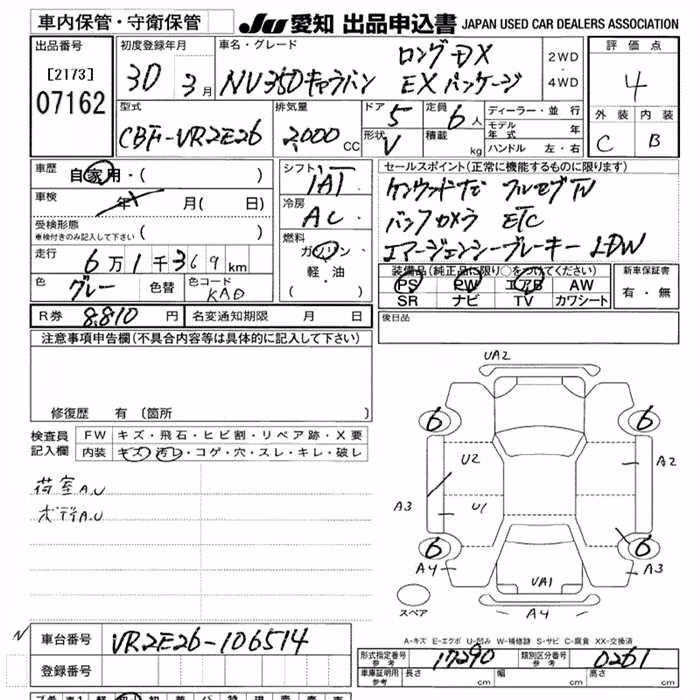 車内保管・守衛保管
JU 愛知 出品申込書 JAPAN USED CAR DEALERS ASSOCIATION
出品番号
[2173]
07162
初度登録年月
30 3月
車名・グレード
ロングDX
NV350キャラバン EXパッケージ
2WD
・
4WD
評価点
4
外装 内装
C B
型式
CBF-VR2E26
排気量
2,000 CC
ドア 5
形状 V
定員 6 人
積載 kg
ディーラー・並行
モデル年式 年
ハンドル 左・右
車歴
自家用・( )
車検
年 月(日)
受検形態
車検付きのみ記入して下さい ( )
走行
6万1千369km
色 グレー 色替 色コード KAD
シフト
IAT
冷房
AC
燃料
ガソリン・
軽・油
・( )
セールスポイント(正常に機能するものに限ります)
ケンウッドナビ フルセグTV
バックカメラ ETC
エマージェンシーブレーキー LDW
装備品(純正品に限り○をつけてください)
PS PW エアB AW
SR ナビ TV カワシート
新車保証書
有・無
R券 8,810 円 名変通知期限 月 日
後日品
注意事項申告欄(不具合内容等は具体的に記入して下さい)
修復歴 有 (箇所 )
検査員
記入欄
FW キズ・飛石・ヒビ割・リペア跡・X要
内装 キズ・汚レ・コゲ・穴・スレ・キレ・破レ
荷室A.U
ボディA.U
UA2
6 6
U2 A2
A3 U1
6 6
A4 A3
UA1
スペア A4
A-キズ E-エクボ U-凹み W-補修跡 S-サビ C-腐食 XX-交換済
N 車台番号 VR2E26-106514
登録番号
形式指定番号 参考 17290 類別区分番号 参考 0261
車庫証明用 参考 長さ cm 幅 cm 高さ cm